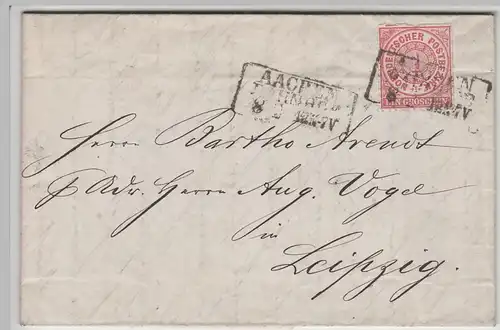 NORDDEUTSCHER POSTBEZIRK
EIN GROSCHEN
AACHEN
8
12N-7V
Herrn Bartho Arendt
p Adr. Herrn Aug. Vogel
in
Leipzig.